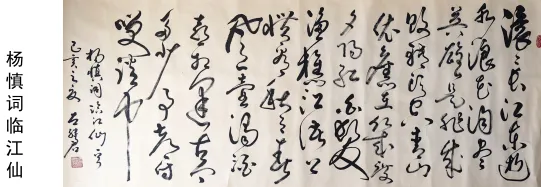 滚滚长江东逝
水浪花淘尽
英雄是非成
败转头空青山
依旧在几度
夕阳红白发
渔樵江渚上
惯看秋月春
风一壶浊酒
喜相逢古今
多少事都付
笑谈中
杨慎词临江仙
己亥之夏
杨慎词临江仙